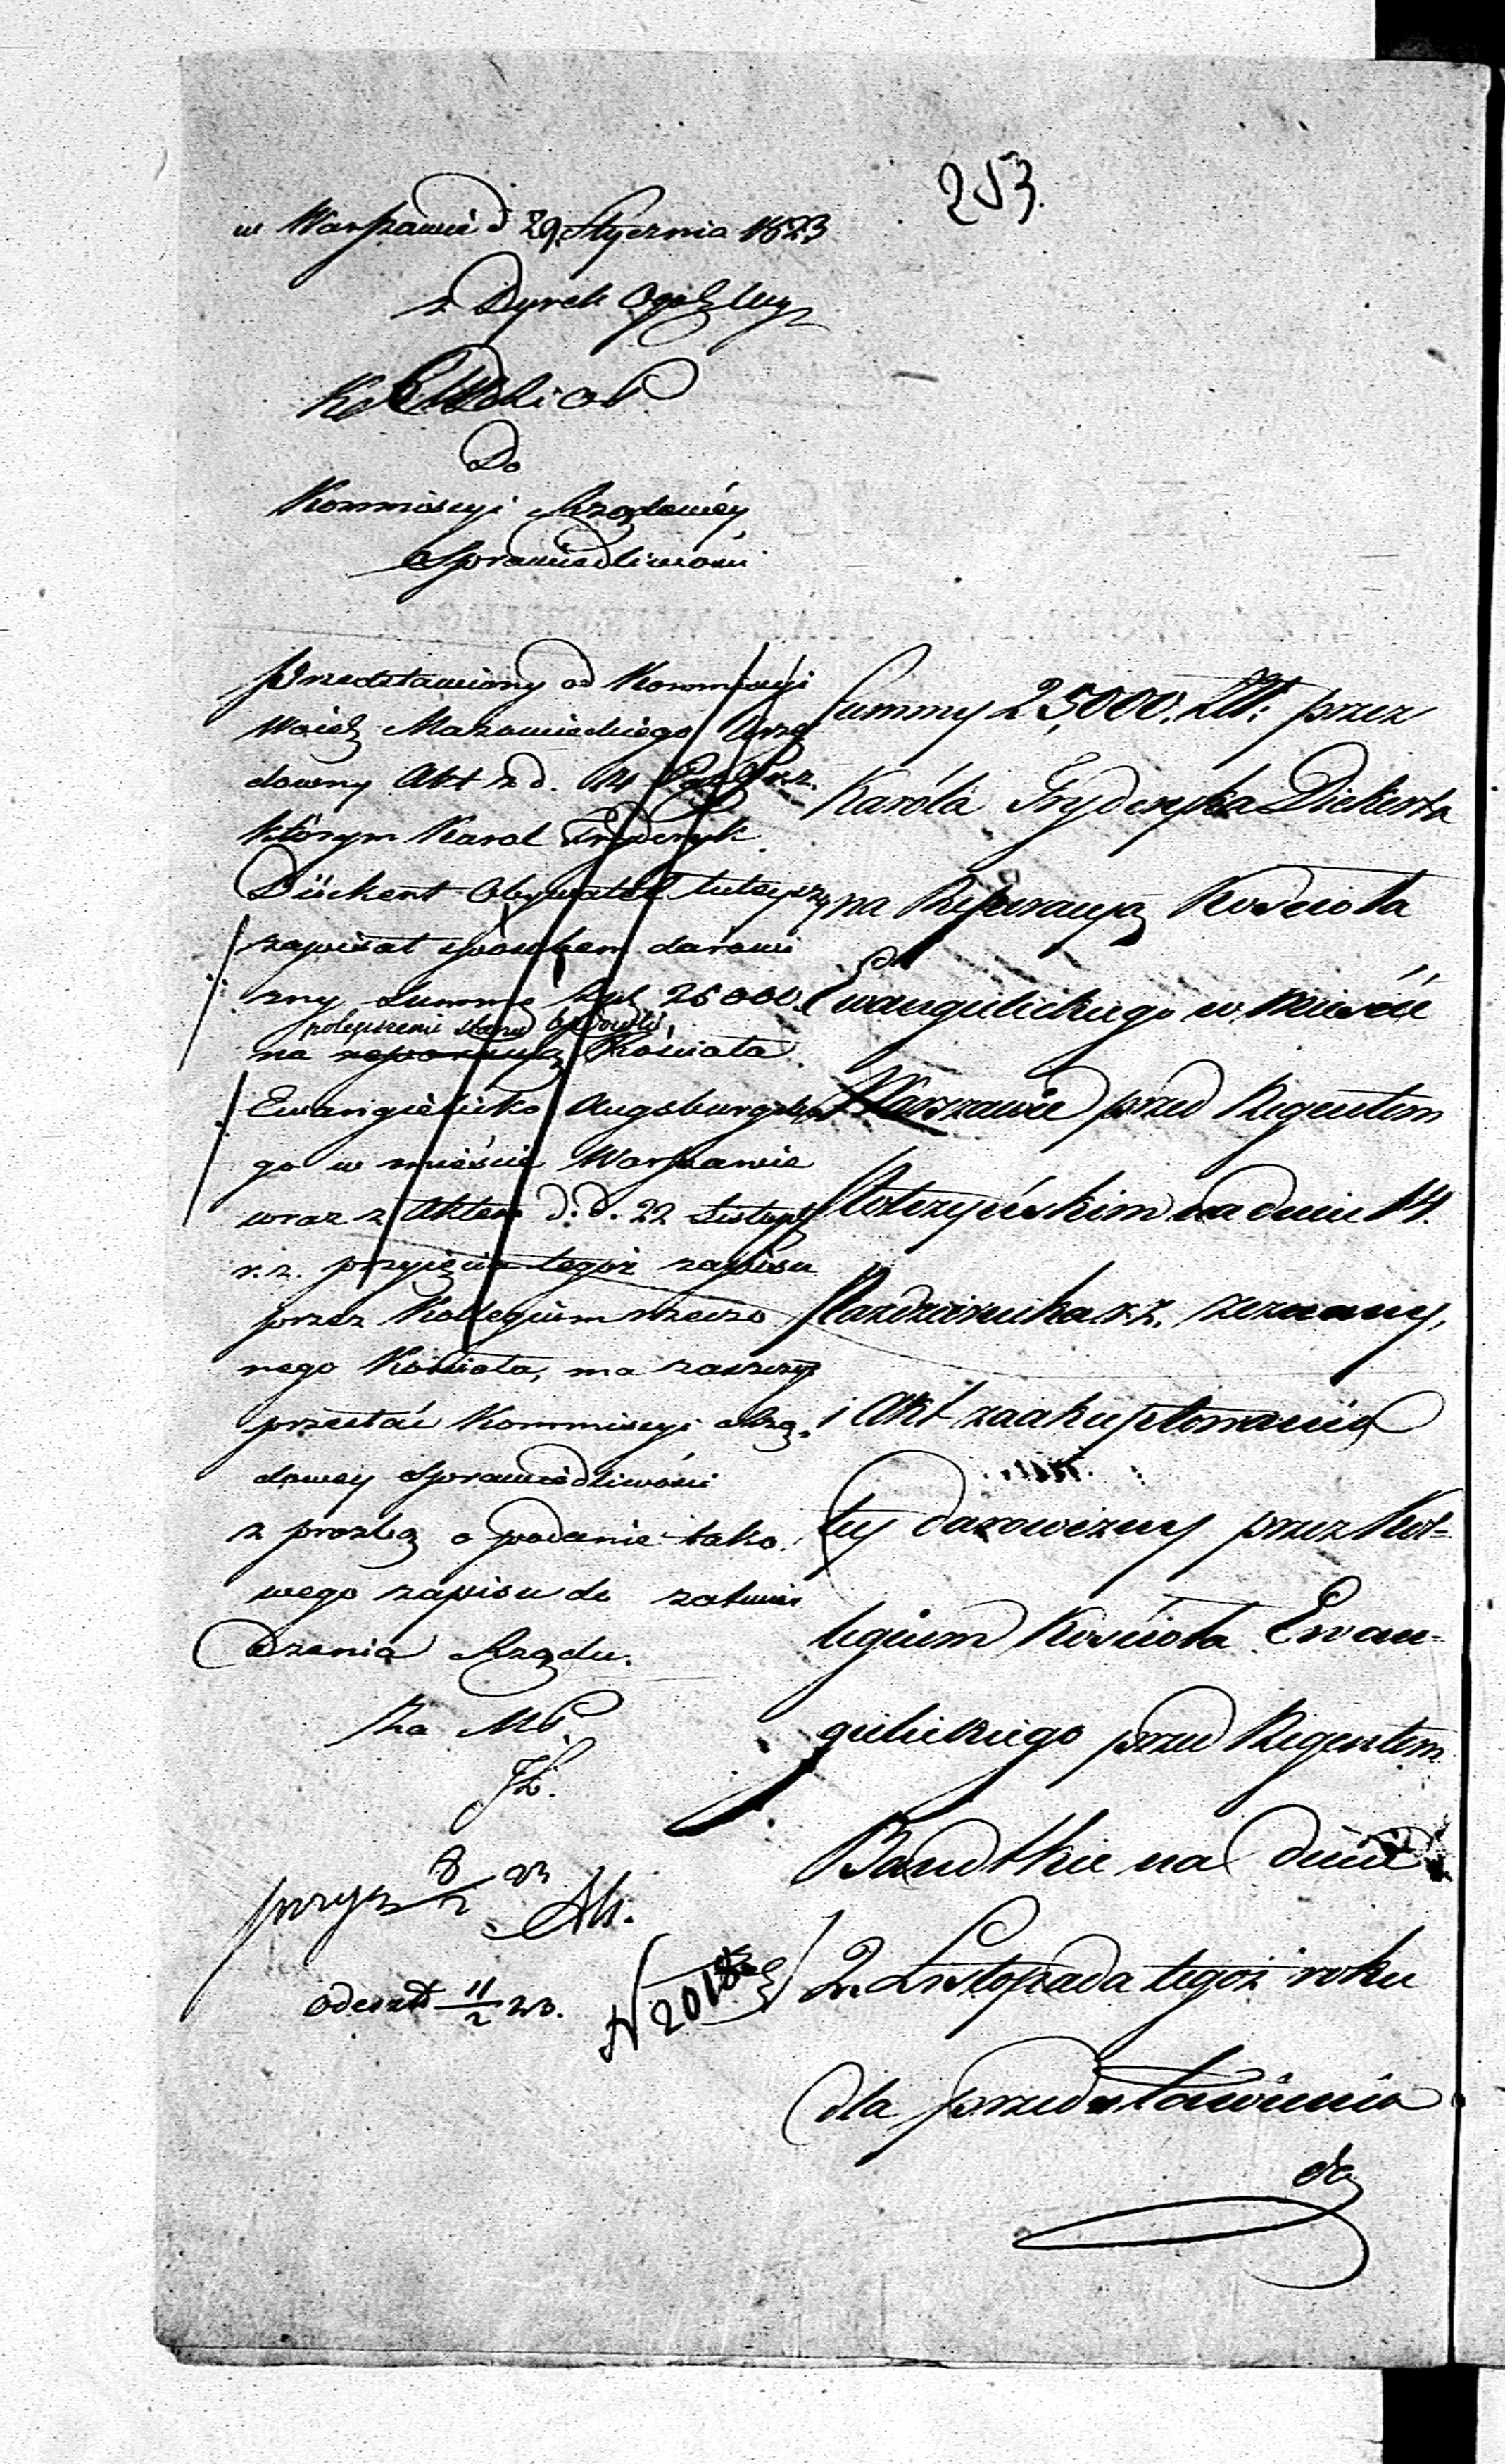 253.
w Warszawie d 29 Stycznia 1823
z Dyrek Ogól
Do
Kommissyi Rządowéy
Sprawiedliwości
Przedstawiony od Kommissyi
Woiew Mazowieckiego Urzę
downy Akt z d. 14 r. z.
którym Karol Fryderyk
Dückert Obywatel tuteyszy
zapisał sposobem darowi
zny Summę Zpl 25000
polepszenie stanu
na reparacyą Kościoła
Ewangielicko Augsburgskie
go w mieście Warszawie
wraz z Aktem d. d. 22 Listop
r. z. przyjęcia tegoż zapisu
przez Kollegium rzeczo
nego Kościoła, ma zaszczyt
przesłać Kommissyi Rzą
dowey Sprawiedliwości
z prozbą o podanie tako
wego zapisu do zatwier
dzenia Rządu.
Za MP.
przysz 8/2 23
odeszł 11/2 23.
N 2018
Summy 25,000. Złt: przez
Karóla Fryderyka Dickerta
na Reperacyą Kościoła
Ewangelickiego w Mieście
Warszawie przed Regentem
na dniu 14.
Pazdziernika r. z. zeznany,
i Akt zaakceptowania
tey darowizny przez Kol-
legium Kościoła Ewan-
gielickiego przed Regentem
Bandtkie na dniu
2. Listopada tegoż roku
dla przedstawienia